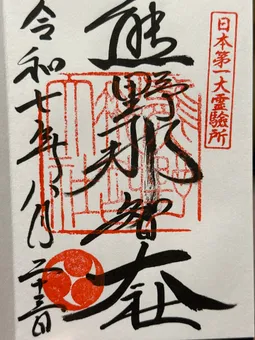 日本第一大霊験所
熊野那智大社
令和七年八月二十三日